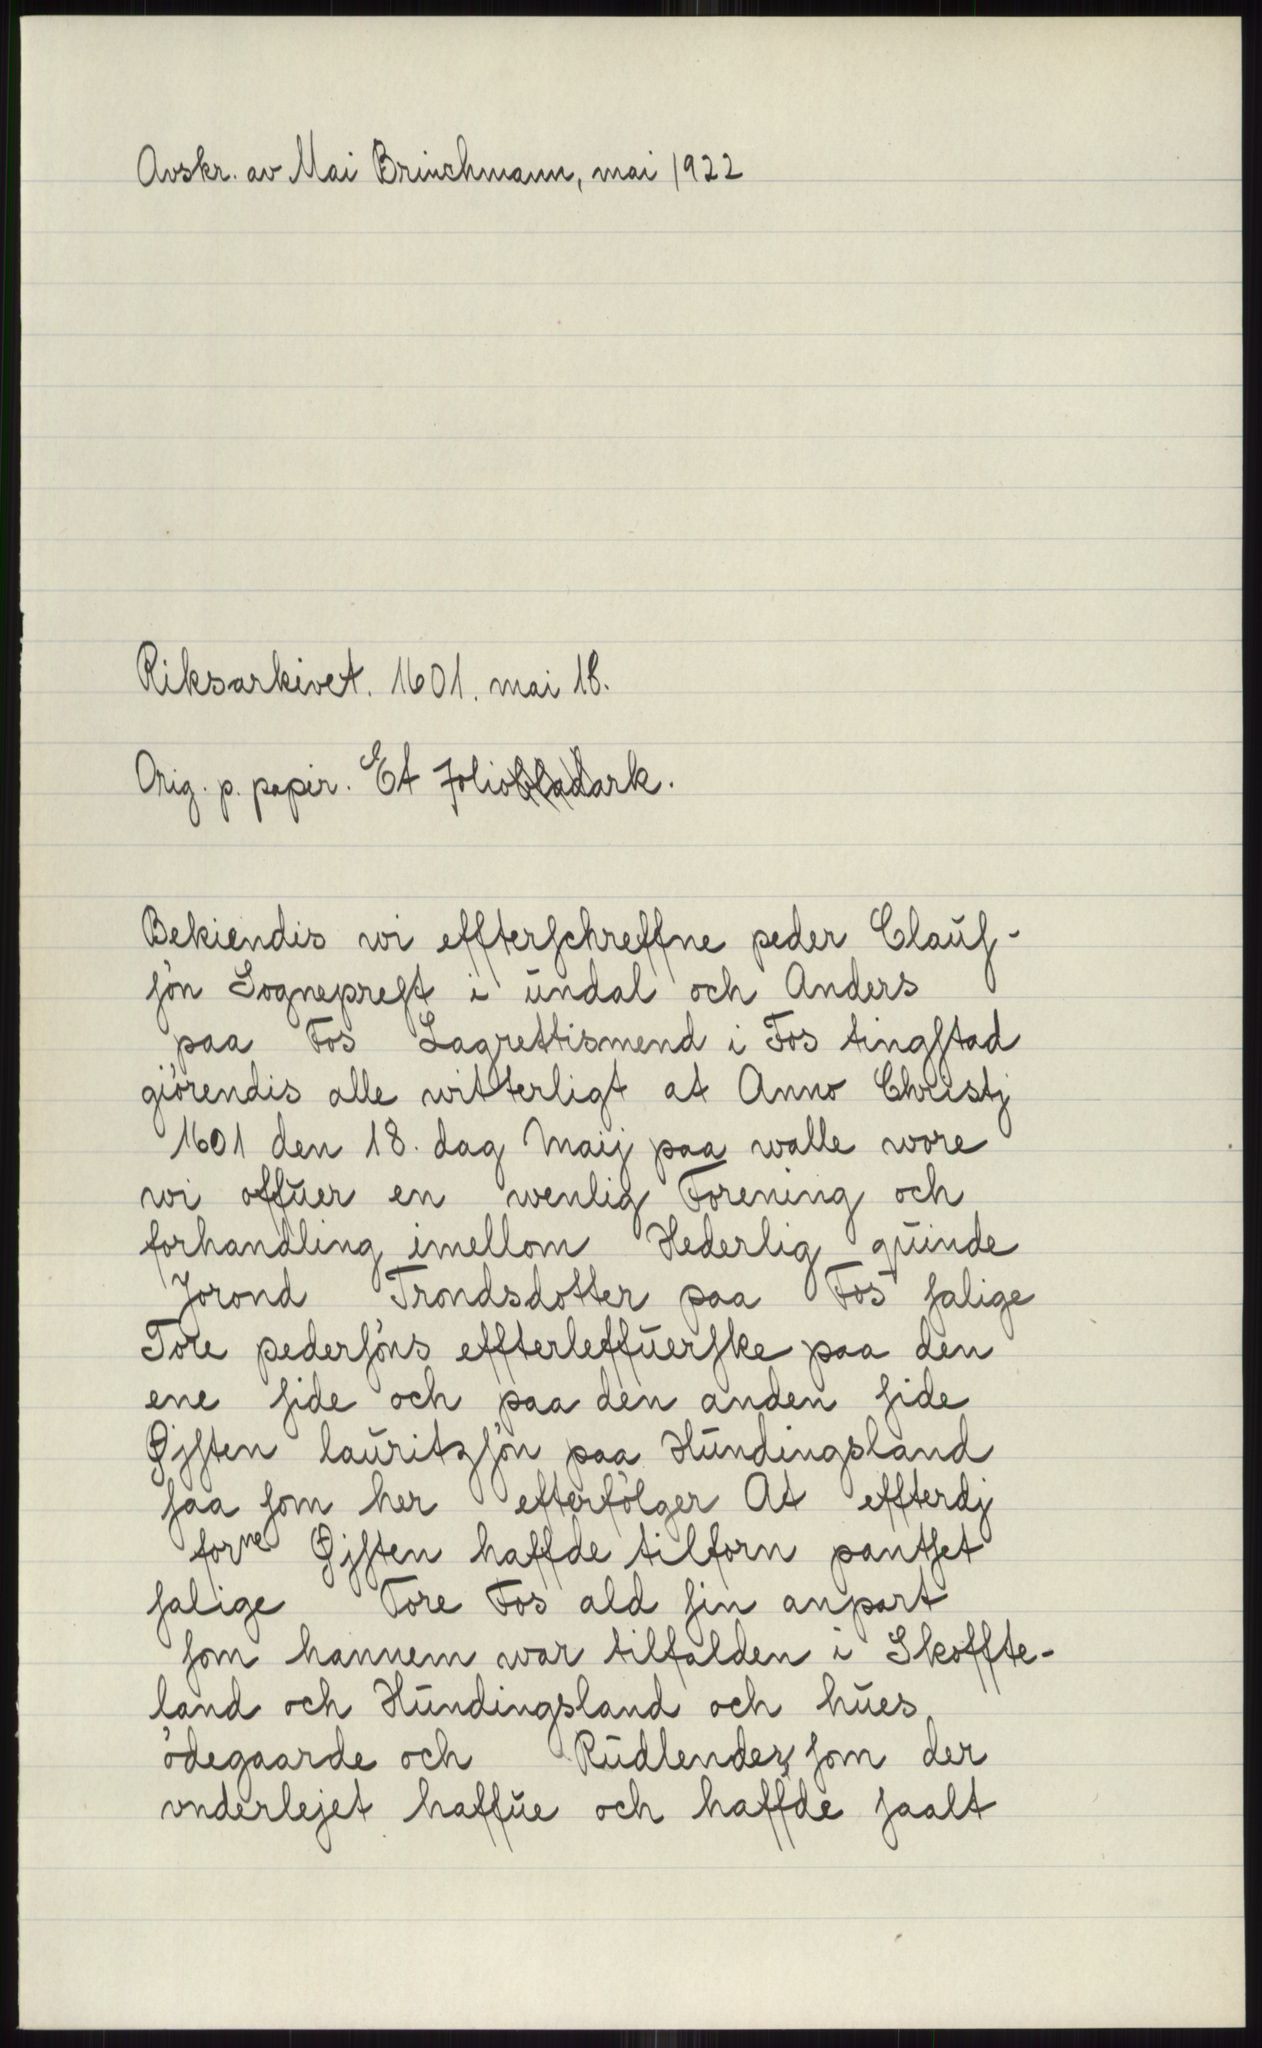 Avskr. av Mai Brinchmann, mai 1922
Riksarkivet. 1601. mai 18.
Orig. p. papir. Et folio​ark.
Bekiendis wi effterſchreffne peder Clauſ-
ſön Sognepreſt i undal och Anders
paa Fos Lagrettismend i Fos tingſtad
giörendis alle witterligt at Anno Christj
1601 den 18. dag Maij paa walle wore
wi offuer en wenlig Forening och
forhandling imellom Hederlig quinde
Jorond Trondsdotter paa Fos ſalige
Tore pederſöns effterleffuerſke paa den
ene ſide och paa den anden ſide
Øjſten lauritzſön paa Hundingsland
ſaa ſom her efterfölger At effterdj
forne Øjſten haffde tilforn pantſet
ſalige Tore Fos ald ſin anpart
ſom hannem war tilfalden i Skoffte-
land och Hundingsland och hues
ödegaarde och Rudlender ſom der
vnderlejet haffue och haffde ſaalt